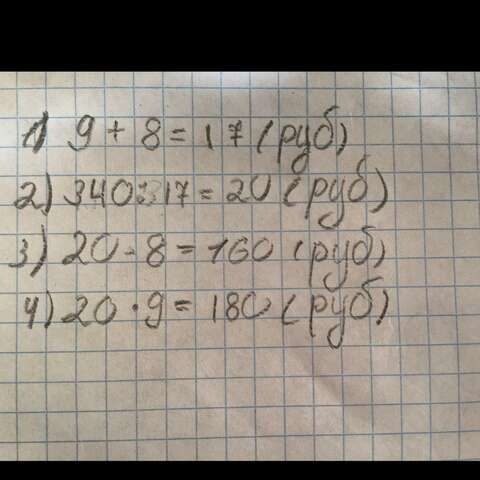 1) 9 + 8 = 17 (руб)
2) 340:17 = 20 (руб)
3) 20 - 8 = 160 (руб)
4) 20 · 9 = 180 (руб)